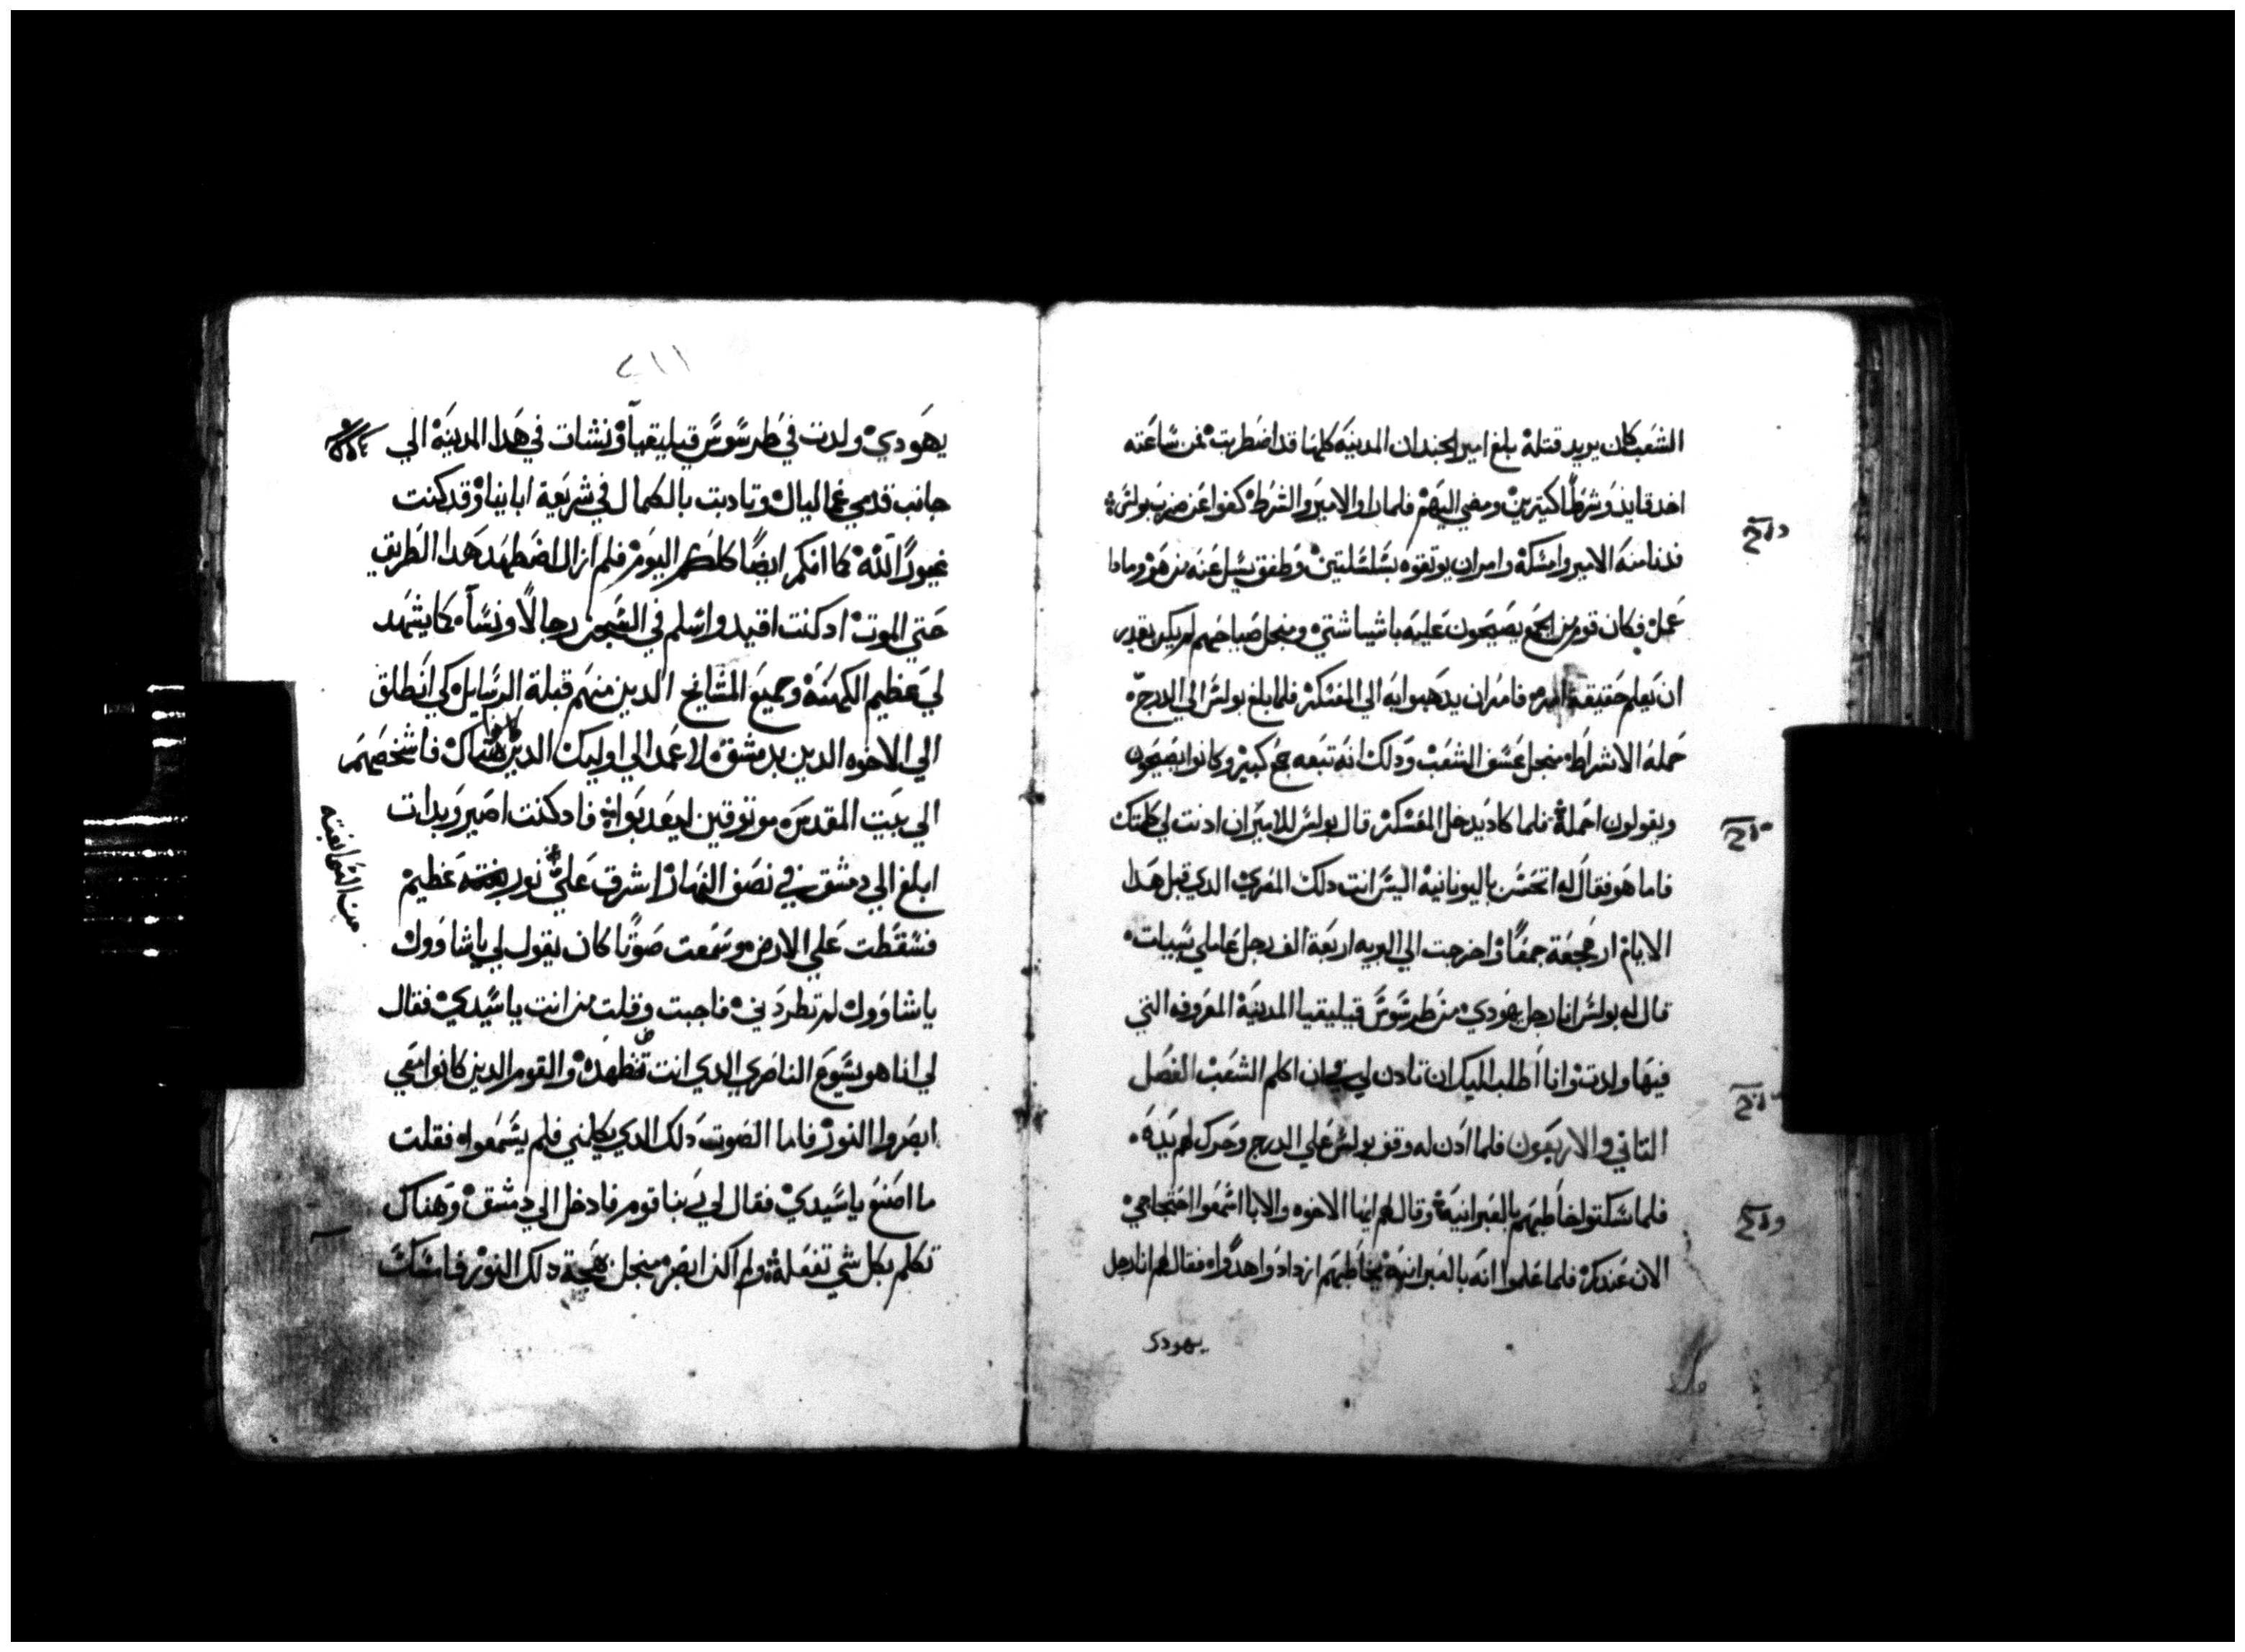 الشعب كان يريد قتله بلغ امير الجند ان المدينه كلها قد اضطربت فمن ساعته
اخد قايد وشرطا كتيرين ومضي اليهم فلما راوا الامير والشرط كفوا عن ضرب بولس
فدنا منه الامير وامسكه وامر ان يوتقوه بسلسلتين وطفق يسيل عنه من هو وماداا
عمل فكان قوم من الجمع يصيحون عليه باشيا شتي ومنجل صياحهم لم يكن يقدر
ان يعلم حقيقة امره فامر ان يدهبوا به الي المعسكر فلما بلغ بولس الي الدرج
حمله الاشراط منجل عسف الشعب ودلك انه تبعه جمع كبير وكانوا يصيحون
ويقولون احمله فلما كاد يدخل المعسكر قال بولس للامير ان ادنت لي كلمتك
فاما هو فقال له اتحسن باليونانيه اليس انت دلك المصري الدي قبل هدا
الايام ارهجت جمعا واخرجت الي البريه اربعة الف رجل عاملي سيات
قال له بولس انا رجل يهودي من طرسوس قيليقيا المدينة المعروفه التي
فيها ولدت وانا اطلب اليك ان تادن لي في ان اكلم الشعب الفصل
التاني والاربعون فلما ادن له وقف بولس علي الدرج وحرك لهم يده
فلما سكتوا خاطبهم بالعبرانية وقال لهم ايها الاخوه والابا اسمعوا احتجاجي
الان عندكم فلما علموا انه بالعبرانية يخاطبهم ازدادوا هدوا فقال لهم انا رجل
يهودي
٢١١
يهودي ولدت في طرسوس قيليقيا ونشات في هدا المدينه الي
جانب قدمي غماليال وتادبت بالكمال في شريعة اباينا وقد كنت
غيورا لله كما انكم ايضا كلكم اليوم فلم ازل اضطهد هدا الطريق
حتي الموت اد كنت اقيد واسلم في السجن رجالا ونساء كما يشهد
لي عظيم الكهنه وجميع المشايخ الدين منهم قبلة الرسايل كي انطلق
الي الاخوه الدين بدمشق لاعمد الي اوليك الدين كانوا هناك فاشخصهم
الي بيت المقدس موتوقين ليعدبوا فاد كنت اصير وبدات
ابلغ الي دمشق في نصف النهار اشرق علي نور عظيم
من السما بغته
فسقطت علي الارض وسمعت صوتا كان يقول لي ياشاوول
ياشاوول لم تطردني فاجبت وقلت من انت ياسيدي فقال
لي انا هو يسوع الناصري الدي انت تضطهده والقوم الدين كانوا معي
ابصروا النور فاما الصوت دلك الدي يكلمني فلم يسمعوا فقلت
ما اصنع ياسيدي فقال لي ربنا قوم فادخل الي دمشق وهناك
تكلم بكل شي تفعله ولم اكن ابصر منجل بهجة دلك النور فامسك